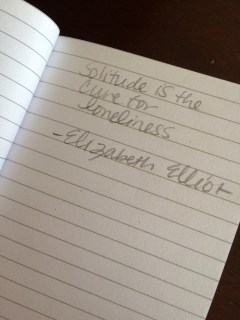 Solitude is the
cure for
loneliness
-Elizabeth Elliot